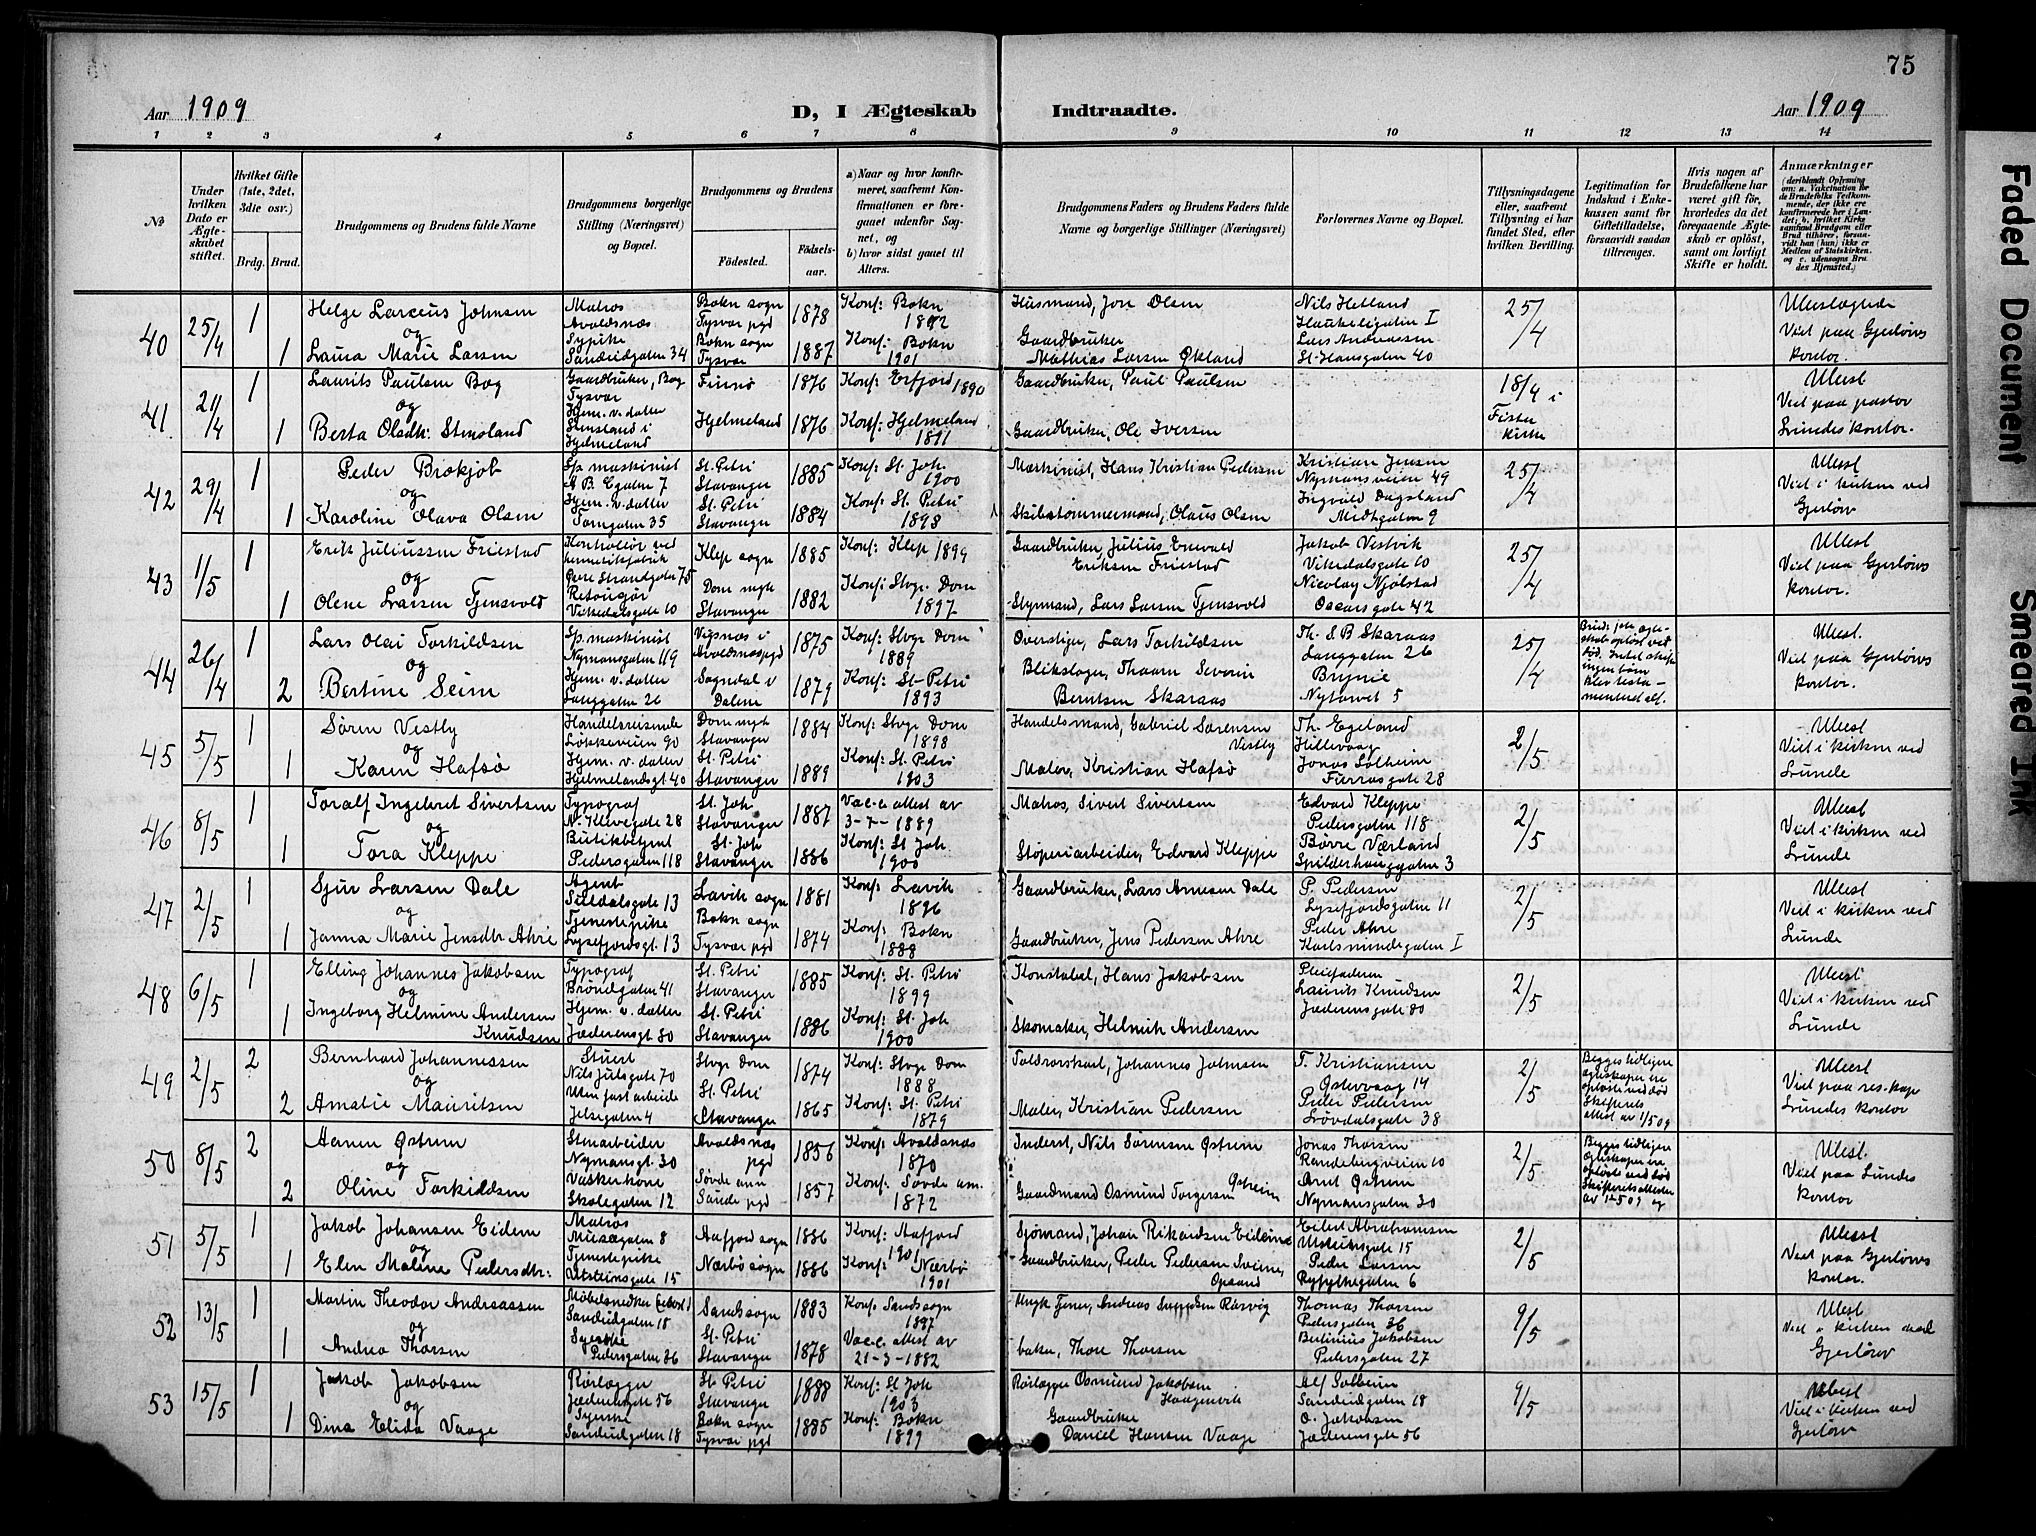 75
Aar 1909
D, I Ægteskab Indtraadte.
Aar 1909
1 2 3 4 5 6 7 8 9 10 11 12 13 14
No
Under hvilken Dato er Ægteskabet stiftet.
Hvilket Gifte (1ste, 2det, 3die osv.)
Brdg. Brud.
Brudgommens og Brudens fulde Navne
Brudgommens borgerlige Stilling (Næringsvei) og Bopæl.
Brudgommens og Brudens
Födested.
Födselsaar.
a) Naar og hvor konfirmeret, saafremt Konfirmationen er foregaaet udenfor Sognet, og
b) hvor sidst gaaet til Alters.
Brudgommens Faders og Brudens Faders fulde Navne og borgerlige Stillinger (Næringsvei)
Forlovernes Navne og Bopæl.
Tillysningsdagene eller, saafremt Tillysning ei har fundet Sted, efter hvilken Bevilling.
Legitimation for Indskud i Enkekassen samt for Giftetilladelse, forsaavidt saadan tiltrænges.
Hvis nogen af Brudefolkene har været gift för, hvorledes da det foregaaende Ægteskab er oplöst, samt om lovligt Skifte er holdt.
Anmærkninger
(deriblandt Oplysning om: a. Vakcination for de Brudefolks Vedkommende, der ikke ere konfirmerede her i Landet; b. hvilket Kirkesamfund Brudgom eller Brud tilhörer, forsaavidt han (hun) ikke er Medlem af Statskirken, og c. udensogns Brudes Hjemsted.)
40 25/4 1 Helge Larœus Johnsen Matros Avaldsnæs Bokn sogn Tysvær pgd 1878 Konf: Bokn 1892 Husmand, Jon Olsen Nils Hetland Haukeligaten I 25/4 Ubeslægtede
og
1 Laura Marie Larsen Sypike Sandeidgaten 34 Bokn sogn Tysvær 1887 Konf: Bokn 1901 Gaardbruker Mathias Larsen Økland Lars Andreassen St. Hansgaten 40 Viet paa Gjerløws kontor.
41 21/4 1 Laurits Paulsen Bog Gaardbruker, Bog Tysvær Finnø 1876 Konf: Erfjord 1890 Gaardbruker, Paul Paulsen 18/4 i Fister kirke Ubesl
og
1 Berta Olsdtr. Stensland Hjem. v. datter Stensland i Hjelmeland Hjelmeland 1876 Konf: Hjelmeland 1891 Gaardbruker, Ole Iversen Viet paa pastor Lundes kontor.
42 29/4 1 Peder Brekjob Sp. maskinist St. Petri Stavanger 1885 Konf: St. Joh. 1900 Maskinist, Hans Kristian Pedersen Kristian Jensen Nymansveien 49 25/4 Ubesl
og
1 Karoline Olava Olsen Hjem. v. datter Tomgaten 35 St. Petri Stavanger 1884 Konf: St. Petri 1898 Skibstømmermand, Olaus Olsen Ingvald Dagsland Midtgaten 9 Viet i kirken ved Gjerløw
43 1/5 1 Erik Juliussen Friestad Kontrollør ved hermetikfabrik Øvre Strandgate 75 Klep sogn 1885 Konf: Klep 1899 Gaardbruker, Julius Enevald Eriksen Friestad Jakob Vestvik Vikedalsgate 10 25/4 Ubesl
og
1 Olene Larsen Tjensvold Vikedalsgate 10 Dom mgt Stavanger 1882 Konf: Stvgr. Dom 1897 Styrmand, Lars Larsen Tjensvold Nicolay Njølstad Oscarsgate 42 Viet paa Gjerløws kontor.
44 26/4 1 Lars Olai Torkildsen Sp. maskinist Nymansgaten 119 Vigsnæs i Avaldsnæs pgd 1875 Konf: Stvgr Dom 1889 Overstiger, Lars Torkildsen Th. S. B Skaraas Langgaten 26 25/4 Ubesl.
og
2 Bertine Seim Hjem. v. datter Langgaten 26 Sogndal i Dalene 1879 Konf: St. Petri 1893 Blikslager, Thaarn Severin Berntsen Skaraas Brynie Nytorvet 5 Viet paa Gjerløws kontor.
45 5/5 1 Søren Vestby Handelsreisende Løkkeveien 90 Dom mgt Stavanger 1884 Konf: Stvgr Dom 1898 Handelsmand, Gabriel Sørensen Vestby Th. Egeland Hillevaag 2/5 Ubesl
og
1 Karen Hafsø Hjem. v. datter Hjelmelandsgt. 40 St. Petri Stavanger 1889 Konf: St. Petri 1903 Maler, Kristian Hafsø Jonas Solheim Furrasgate 28 Viet i kirken ved Lunde
46 8/5 1 Toralf Ingebret Sivertsen Typograf N. Klevegate 28 St. Joh Stavanger 1887 Vac-c. attest av 3-7-1889 Matros, Sivert Sivertsen Edvard Kleppe Pedersgaten 118 2/5 Ubesl
og
1 Tora Kleppe Butikbetjent Pedersgaten 118 St. Joh Stavanger 1886 Konf: St. Joh. 1900 Støperiarbeider, Edvard Kleppe Børre Værland Spilderhauggaten 3 Viet i kirken ved Lunde
47 2/5 1 Sjur Larsen Dale Agent Suldalsgate 13 Lavik sogn 1881 Konf: Lavik 1896 Gaardbruker, Lars Arnesen Dale P. Pedersen Lysefjordsgaten 11 2/5 Ubesl
og
1 Janna Marie Jensdtr Ahre Tjenestepike Lysefjordsgt. 13 Bokn sogn Tysvær pgd 1874 Konf: Bokn 1888 Gaardbruker, Jens Pedersen Ahre Peder Ahre Karlsmindegaten I Viet i kirken ved Lunde
48 6/5 1 Elling Johannes Jakobsen Typograf Brøndgaten 41 St. Petri Stavanger 1885 Konf: St. Petri 1899 Konstabel, Hans Jakobsen Pleiefaderen Laurits Knudsen Jæderensgate 80 2/5 Ubesl
og
1 Ingeborg Helmine Andersen Knudsen Hjem. v. datter Jæderensgt 80 St. Petri Stavanger 1886 Konf: St. Joh 1900 Skomaker, Helmik Andersen Viet i kirken ved Lunde
49 2/5 2 Bernhard Johannessen Stuert Nils Julsgate 70 Stvgr Dom 1874 Konf: Stvgr Dom 1888 Toldrorskarl, Johannes Johnsen T. Kristiansen Østervaag 14 2/5 Begges tidligere egteskaper ere opløste ved død Skifterets attest av 1/5 09 Ubesl
og
2 Amalie Mauritsen Uten fast arbeide Jelsegaten 4 St. Petri Stavanger 1865 Konf: St. Petri 1879 Maler, Kristian Pedersen Peder Pedersen Løvdalsgate 38 Viet paa res.kap Lundes kontor
50 8/5 2 Stenarbeider Nymansgt. 30 Avaldsnæs pgd 1856 Konf: Avaldsnæs 1870 Inderst, Nils Sørensen Østrem Jonas Thorsen Randebergveien 10 2/5 Begges tidligere egteskaper ere opløste ved død Skifterets attester av 1-5 09 og Ubesl.
og
2 Oline Torkildsen Vaskerkone Skolegaten 12 Søvde ann Sande pgd 1857 Konf: Søvde an. 1872 Gaardmand Osmund Torgersen Østrem Arnt Østrem Nymansgaten 30 Viet paa Lundes kontor
51 5/5 1 Jakob Johansen Eidem Matros Musægaten 8 Aafjord sogn 1886 Konf: Aafjord 1901 Sjømand, Johan Rikardsen Eidem Eilert Abrahamsen Utsteinsgate 15 2/5 Ubesl
og
1 Elen Maline Pedersdtr: Tjenestepike Utsteinsgate 15 Nærbø sogn 1886 Konf: Nærbø 1901 Gaardbruker, Peder Pedersen Peder Larsen Ryfylkegaten 6 Viet paa Gjerløws kontor.
52 13/5 1 Martin Theodor Andreassen Møbelsnedker Sandeidgaten 18 Sands sogn 1883 Konf: Sands sogn 1897 Andreas Thomas Thorsen Pedersgaten 36 9/5 Ubesl
og
1 Andrea Thorsen Syerske Pedersgaten 36 St. Petri Stavanger 1878 Vac-c. attest av 21-3-1882 baker, Thore Thorsen Berlinius Jakobsen Pedersgaten 27 Viet i kirken ved Gjerløw
53 15/5 1 Jakob Jakobsen Rørlægger Jæderensgate 56 St Petri Stavanger 1888 Konf: St Joh 1903 Rørlægger Osmund Jakobsen Haagenvik Alf Solheim Sandeidgaten 18 9/5 Ubesl
og
1 Dina Elida Vaage Syerske Sandeidgaten 18 Bokn sogn Tysvær pgd 1885 Konf: Bokn 1899 Gaardbruker Daniel Hansen Vaage O. Jakobsen Jæderensgate 56 Viet i kirken ved Gjerløw
Faded Document
Smeared Ink